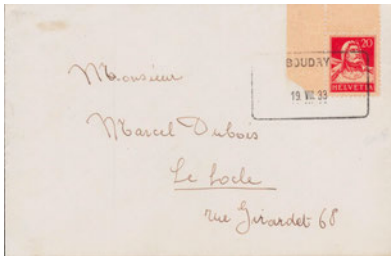 20
BOUDRY
19. VII. 33
HELVETIA
Monsieur
Marcel Dubois
Le Locle
rue Girardet 68